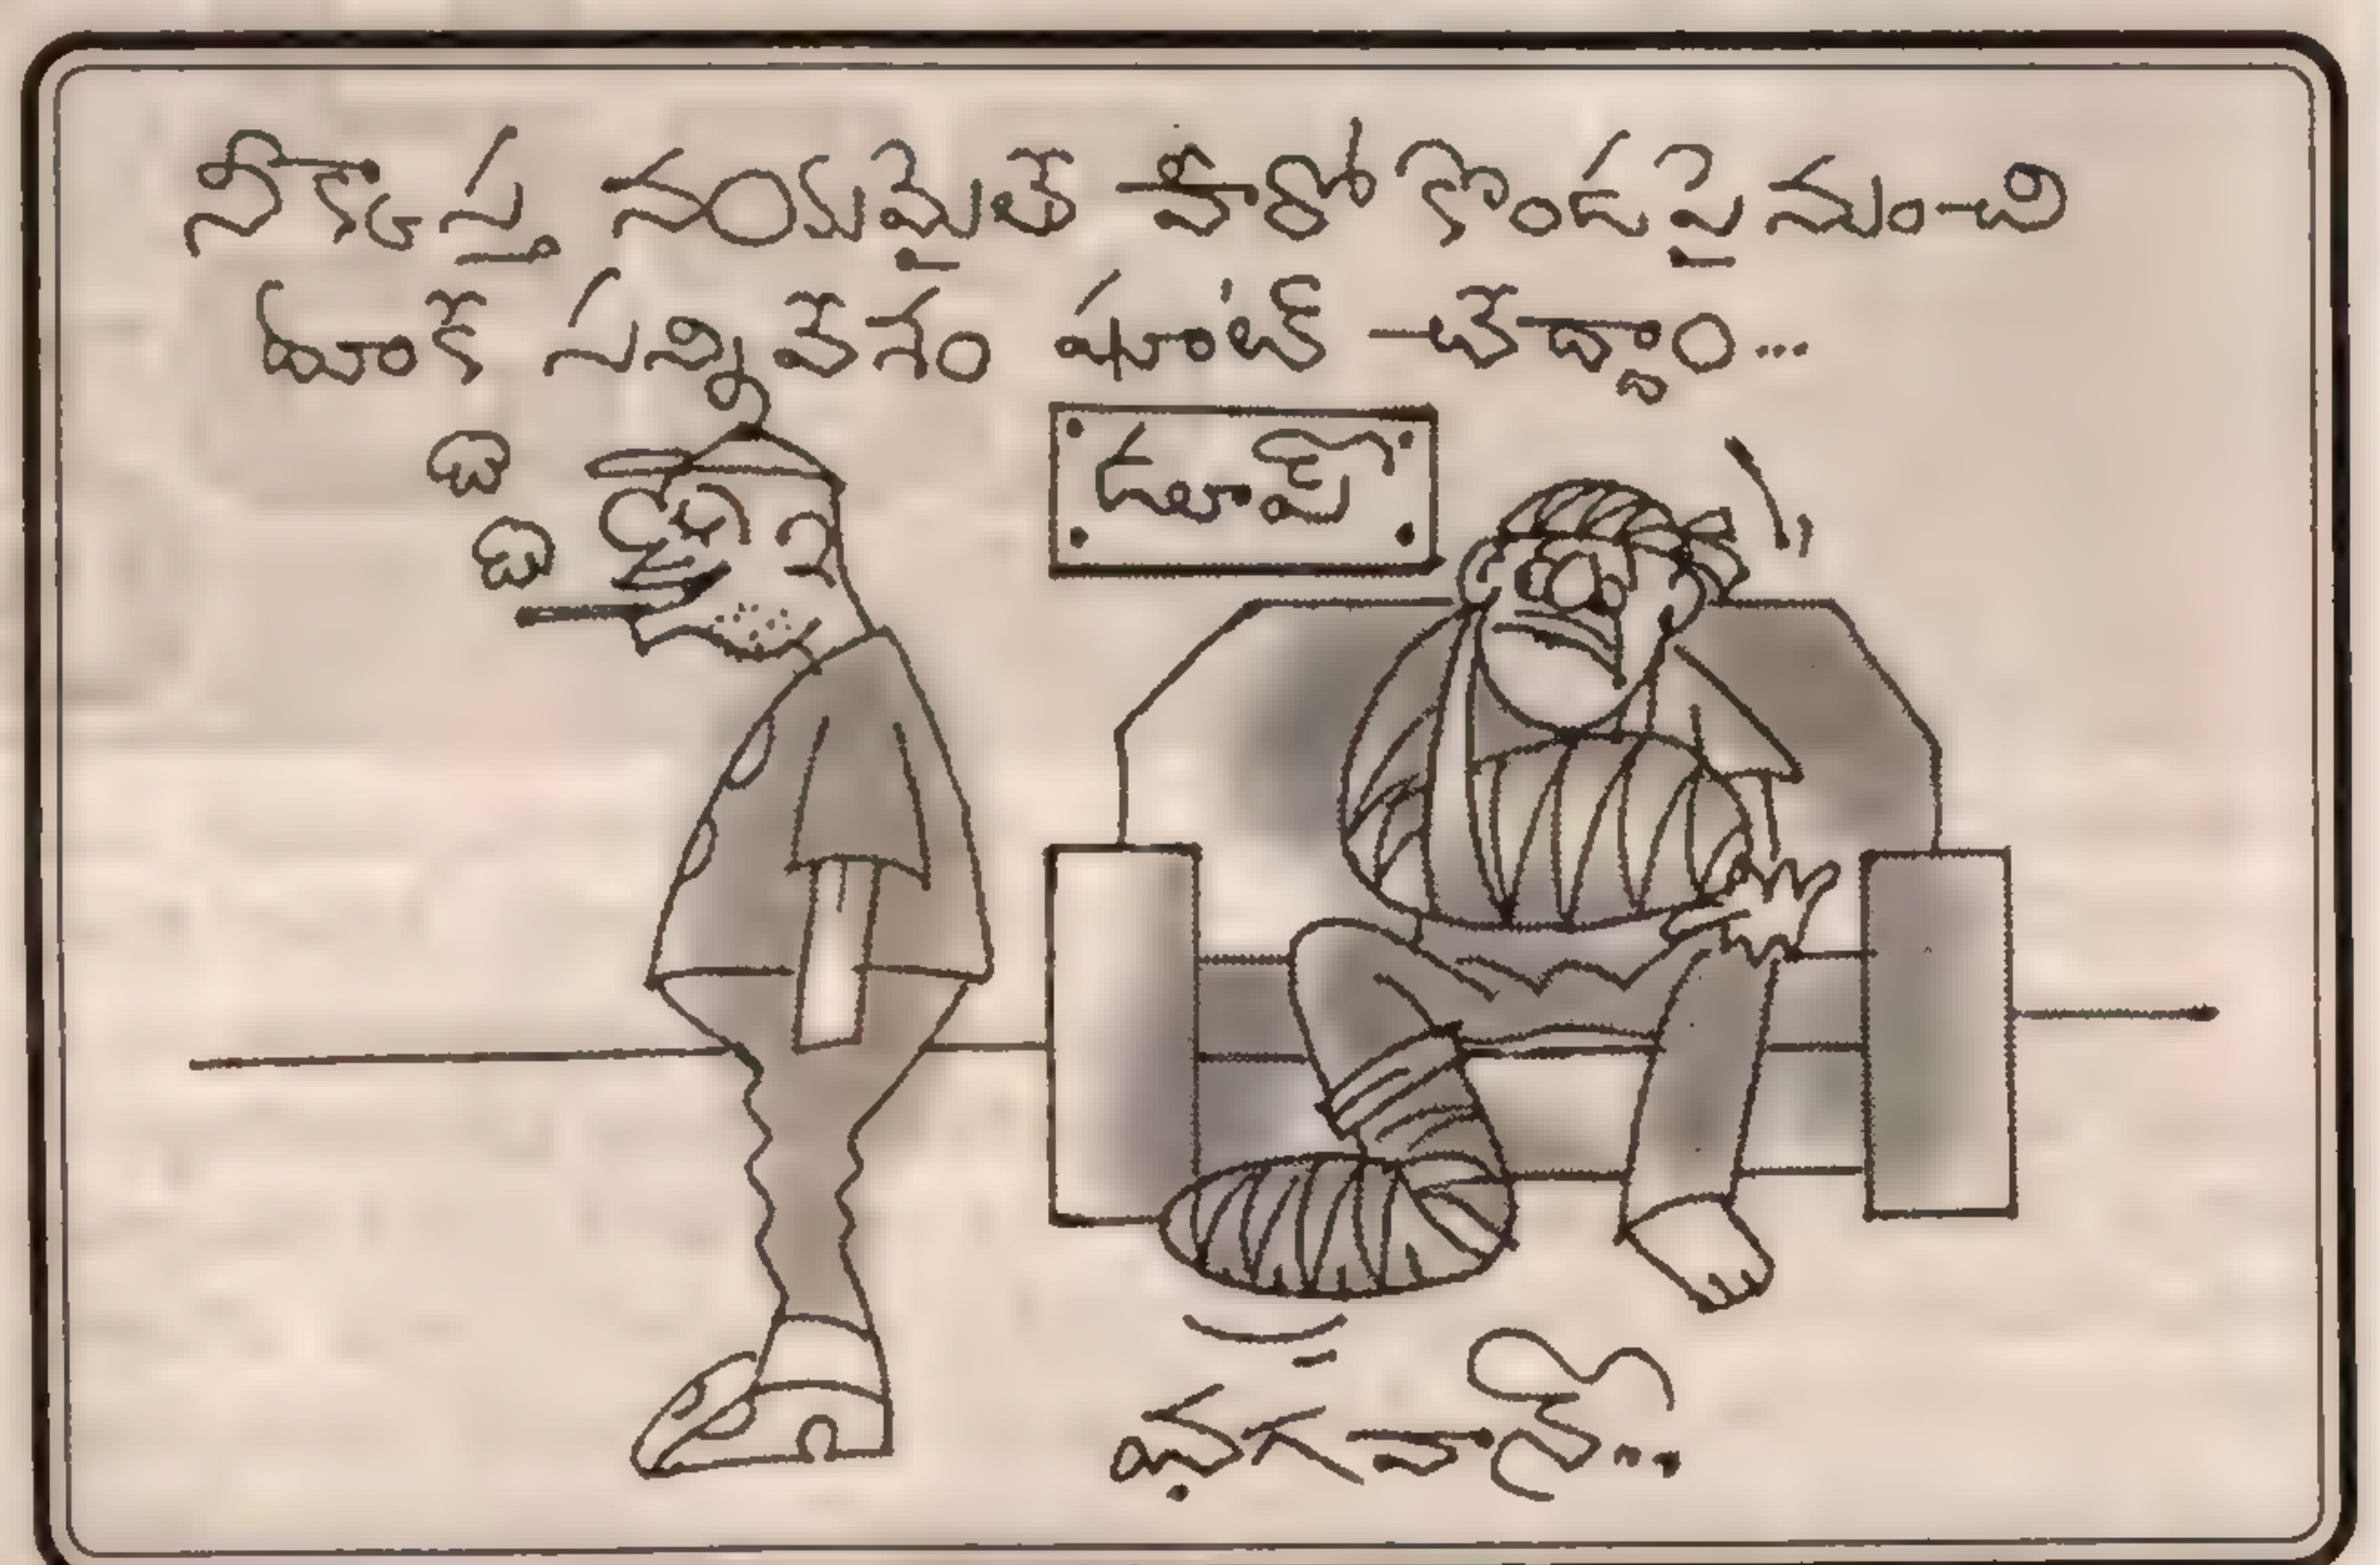 నీకాస్త నయమైతే హీరో కొండపై నుంచి
దూకే సన్నివేశం షూట్ చేద్దాం...
డూప్
భగవాన్..